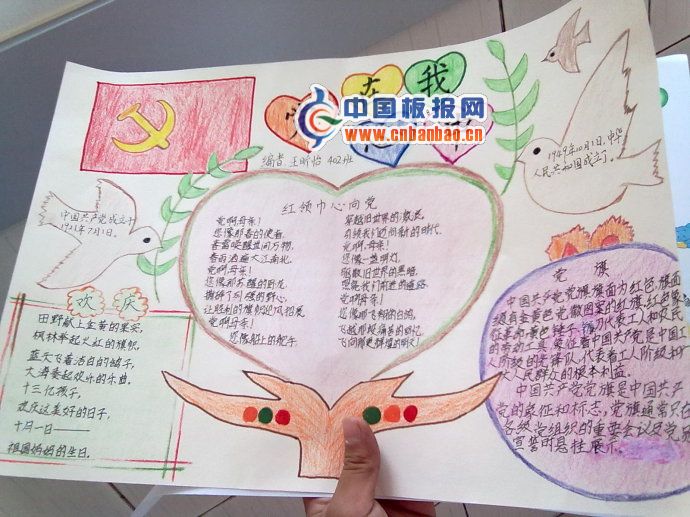 在我
中国板报网
www.cnbanbao.cn
编者 王昕怡 402班
中国共产党成立于
1921年7月1日。
1949年10月1日,中华
人民共和国成立了。
红领巾心向党
党啊母亲!
您像那春的使者,
春雷唤醒世间万物,
春雨洒遍大江南北。
党啊,母亲!
您像那苏醒的雄龙,
让胜利的旗帜迎风招展
党啊母亲!
您像船上的舵手,
穿越旧世界的
党啊,母亲!
您像一盏明灯,
驱散旧世界的黑暗,
党啊母亲!
您像那飞翔的白鸽,
欢庆
田野献上金黄的果实,
枫林举起火红的旗帜,
蓝天飞着洁白的鸽子,
大海奏起欢乐的乐曲。
十三亿孩子,
欢庆这美好的日子,
十月一日——
祖国妈妈的生日。
党旗
中国共产党党旗旗面为红色,旗面
左上角有金黄色党徽图案的红旗,红色象
征革命,黄色锤子、镰刀代表工人和农民
的劳动工具,象征着中国共产党是中国工
人阶级的先锋队,代表着工人阶级和广
大人民群众的根本利益。
中国共产党党旗是中国共产
党的象征和标志,党旗通常只在
各级党组织的重要会议
宣誓时悬挂展示。